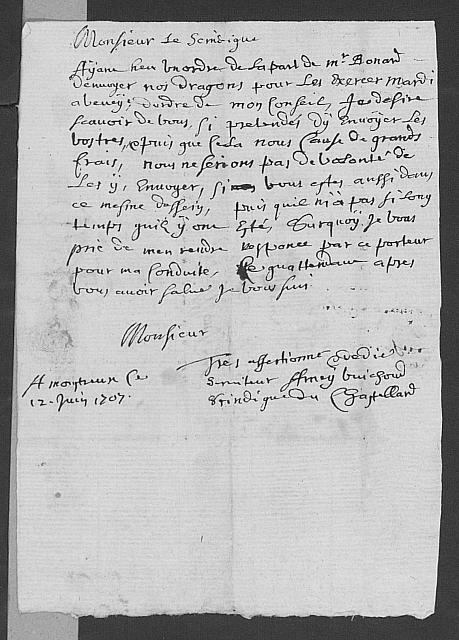 Monsieur Le Scindique
Ayant heu un ordre de la part de mr Bonard
denvoyer nos dragons pour Les exercer mardi
a vevey; d'ordre de mon Conseil, Je desire
scavoir de vous, si pretendés dy Envoyer Les
vostres, puis que Cela nous Cause de grands
frais, nous ne serions pas de volonté de
Les ÿ Envoyer, si vous estes aussi dans
ce mesme dessein, puis quil nÿ a pas si long
temps quil ÿ ont Esté, Surquoÿ Je vous
prie de men rendre responce par ce porteur
pour ma Conduite, Ce quattendant apres
vous avoir salué Je vous suis
Monsieur
A montreux Ce
12. Juin 1707.
Tres affectionné
serviteur vuichoud
Scindique du Chastellard